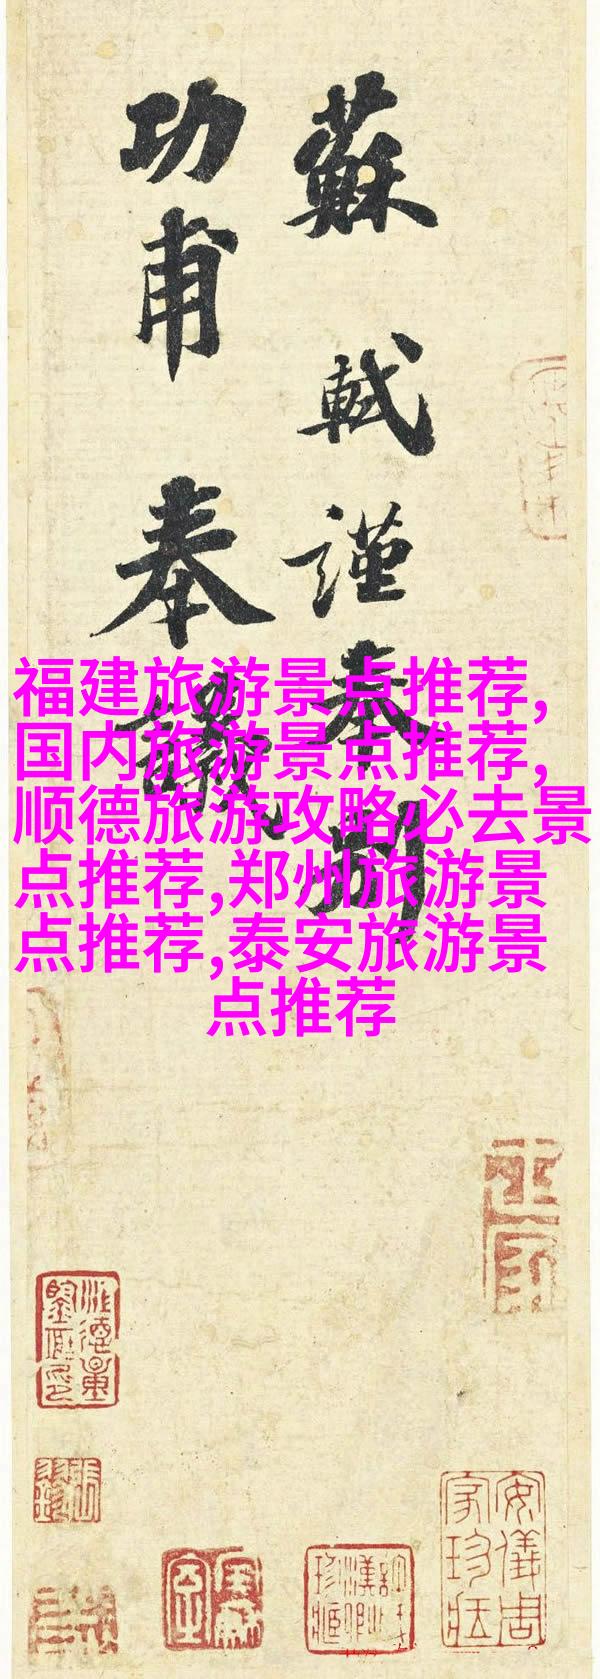 蘇軾謹奉别
功甫奉議
福建旅游景点推荐,
国内旅游景点推荐,
顺德旅游攻略必去景
点推荐,郑州旅游景
点推荐,泰安旅游景
点推荐
安儀周家珍藏